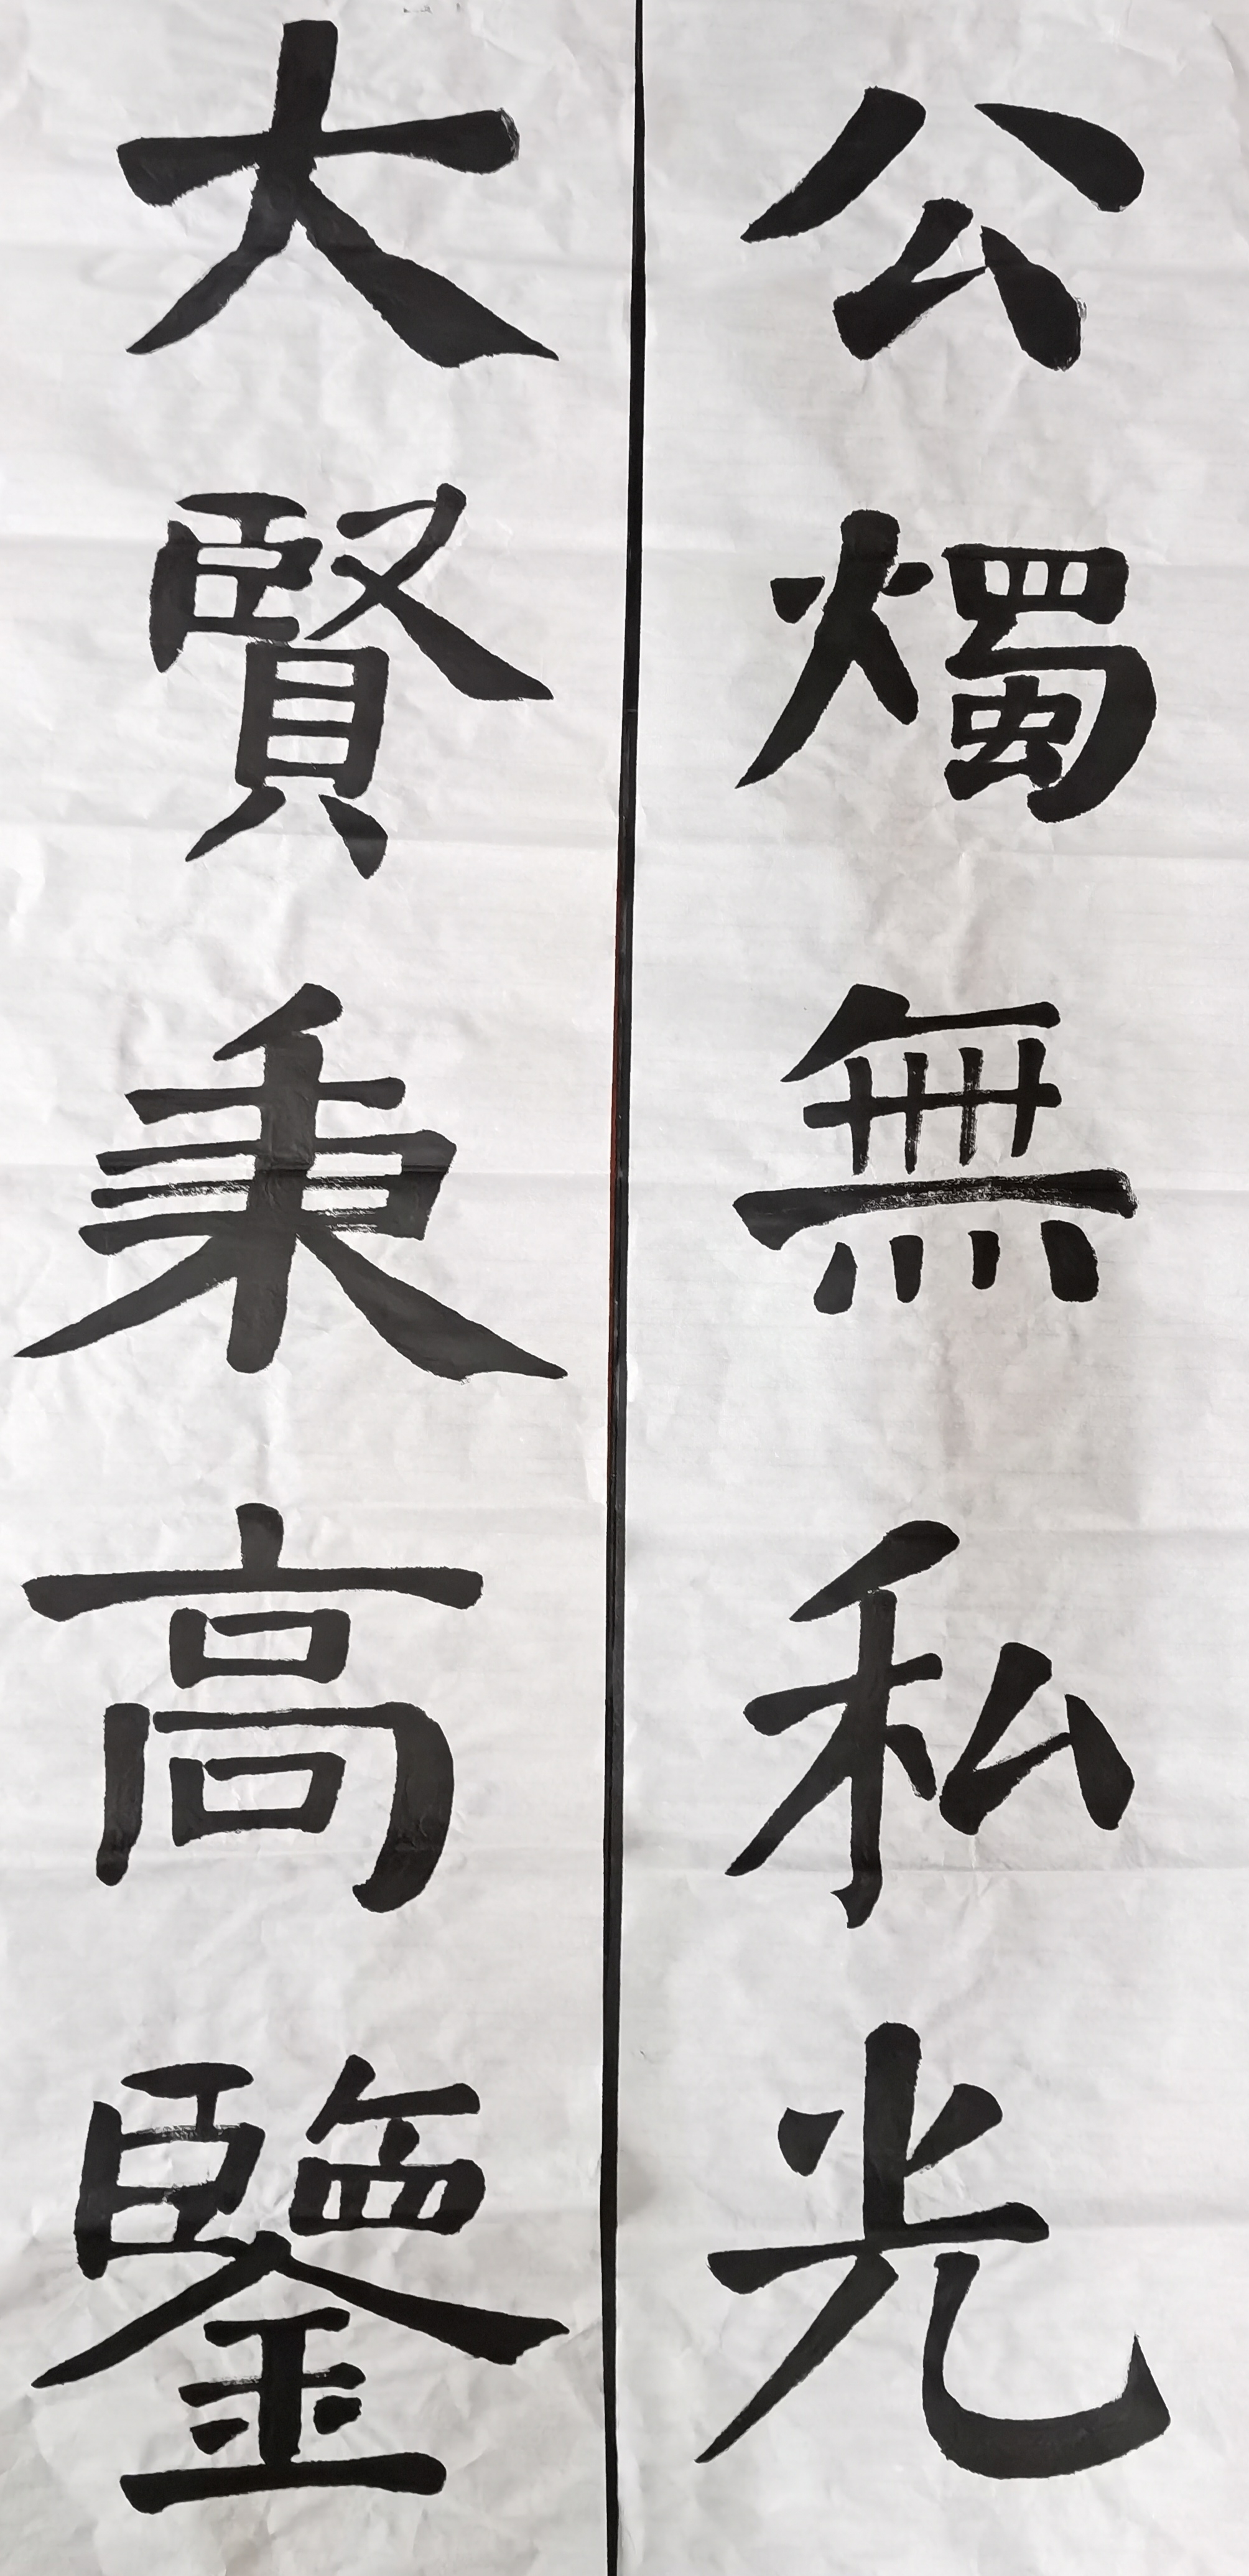 公燭無私光
大賢秉高鑒